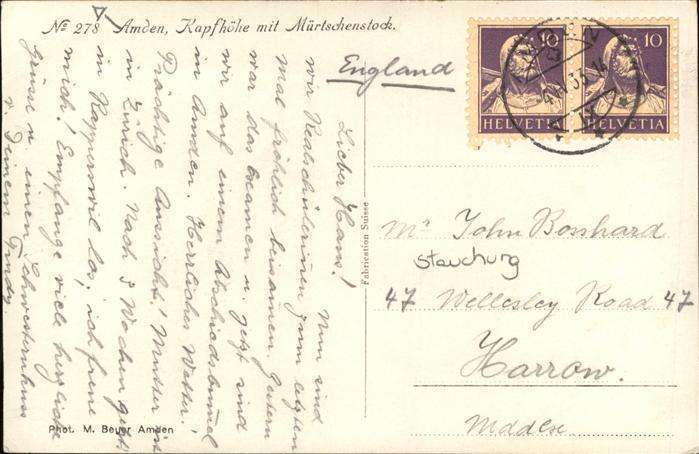 No 278 Amden, Kapfhöhe mit Mürtschenstock.
England
10
10
HELVETIA
HELVETIA
Lieber Hans!
Nun sind
wir Realschülerinnen zum letzten
Mal fröhlich beisammen. Gestern
war das Examen u. jetzt sind
wir auf einem Abschiedsbummel
in Amden. Herrliches Wetter!
Prächtige Aussicht! Mutter ist
in Zürich. Nach 3 Wochen geht's
in Rapperswil los; ich freue
mich! Empfange viele herzliche
Grüsse u. einen Schwesternkuss
v. Deinem Trudy.
Fabrication Suisse
Mr John Bosshard
Stauchung
47 Wellesley Road 47
Harrow.
Middlse
Phot. M. Beuer Amden